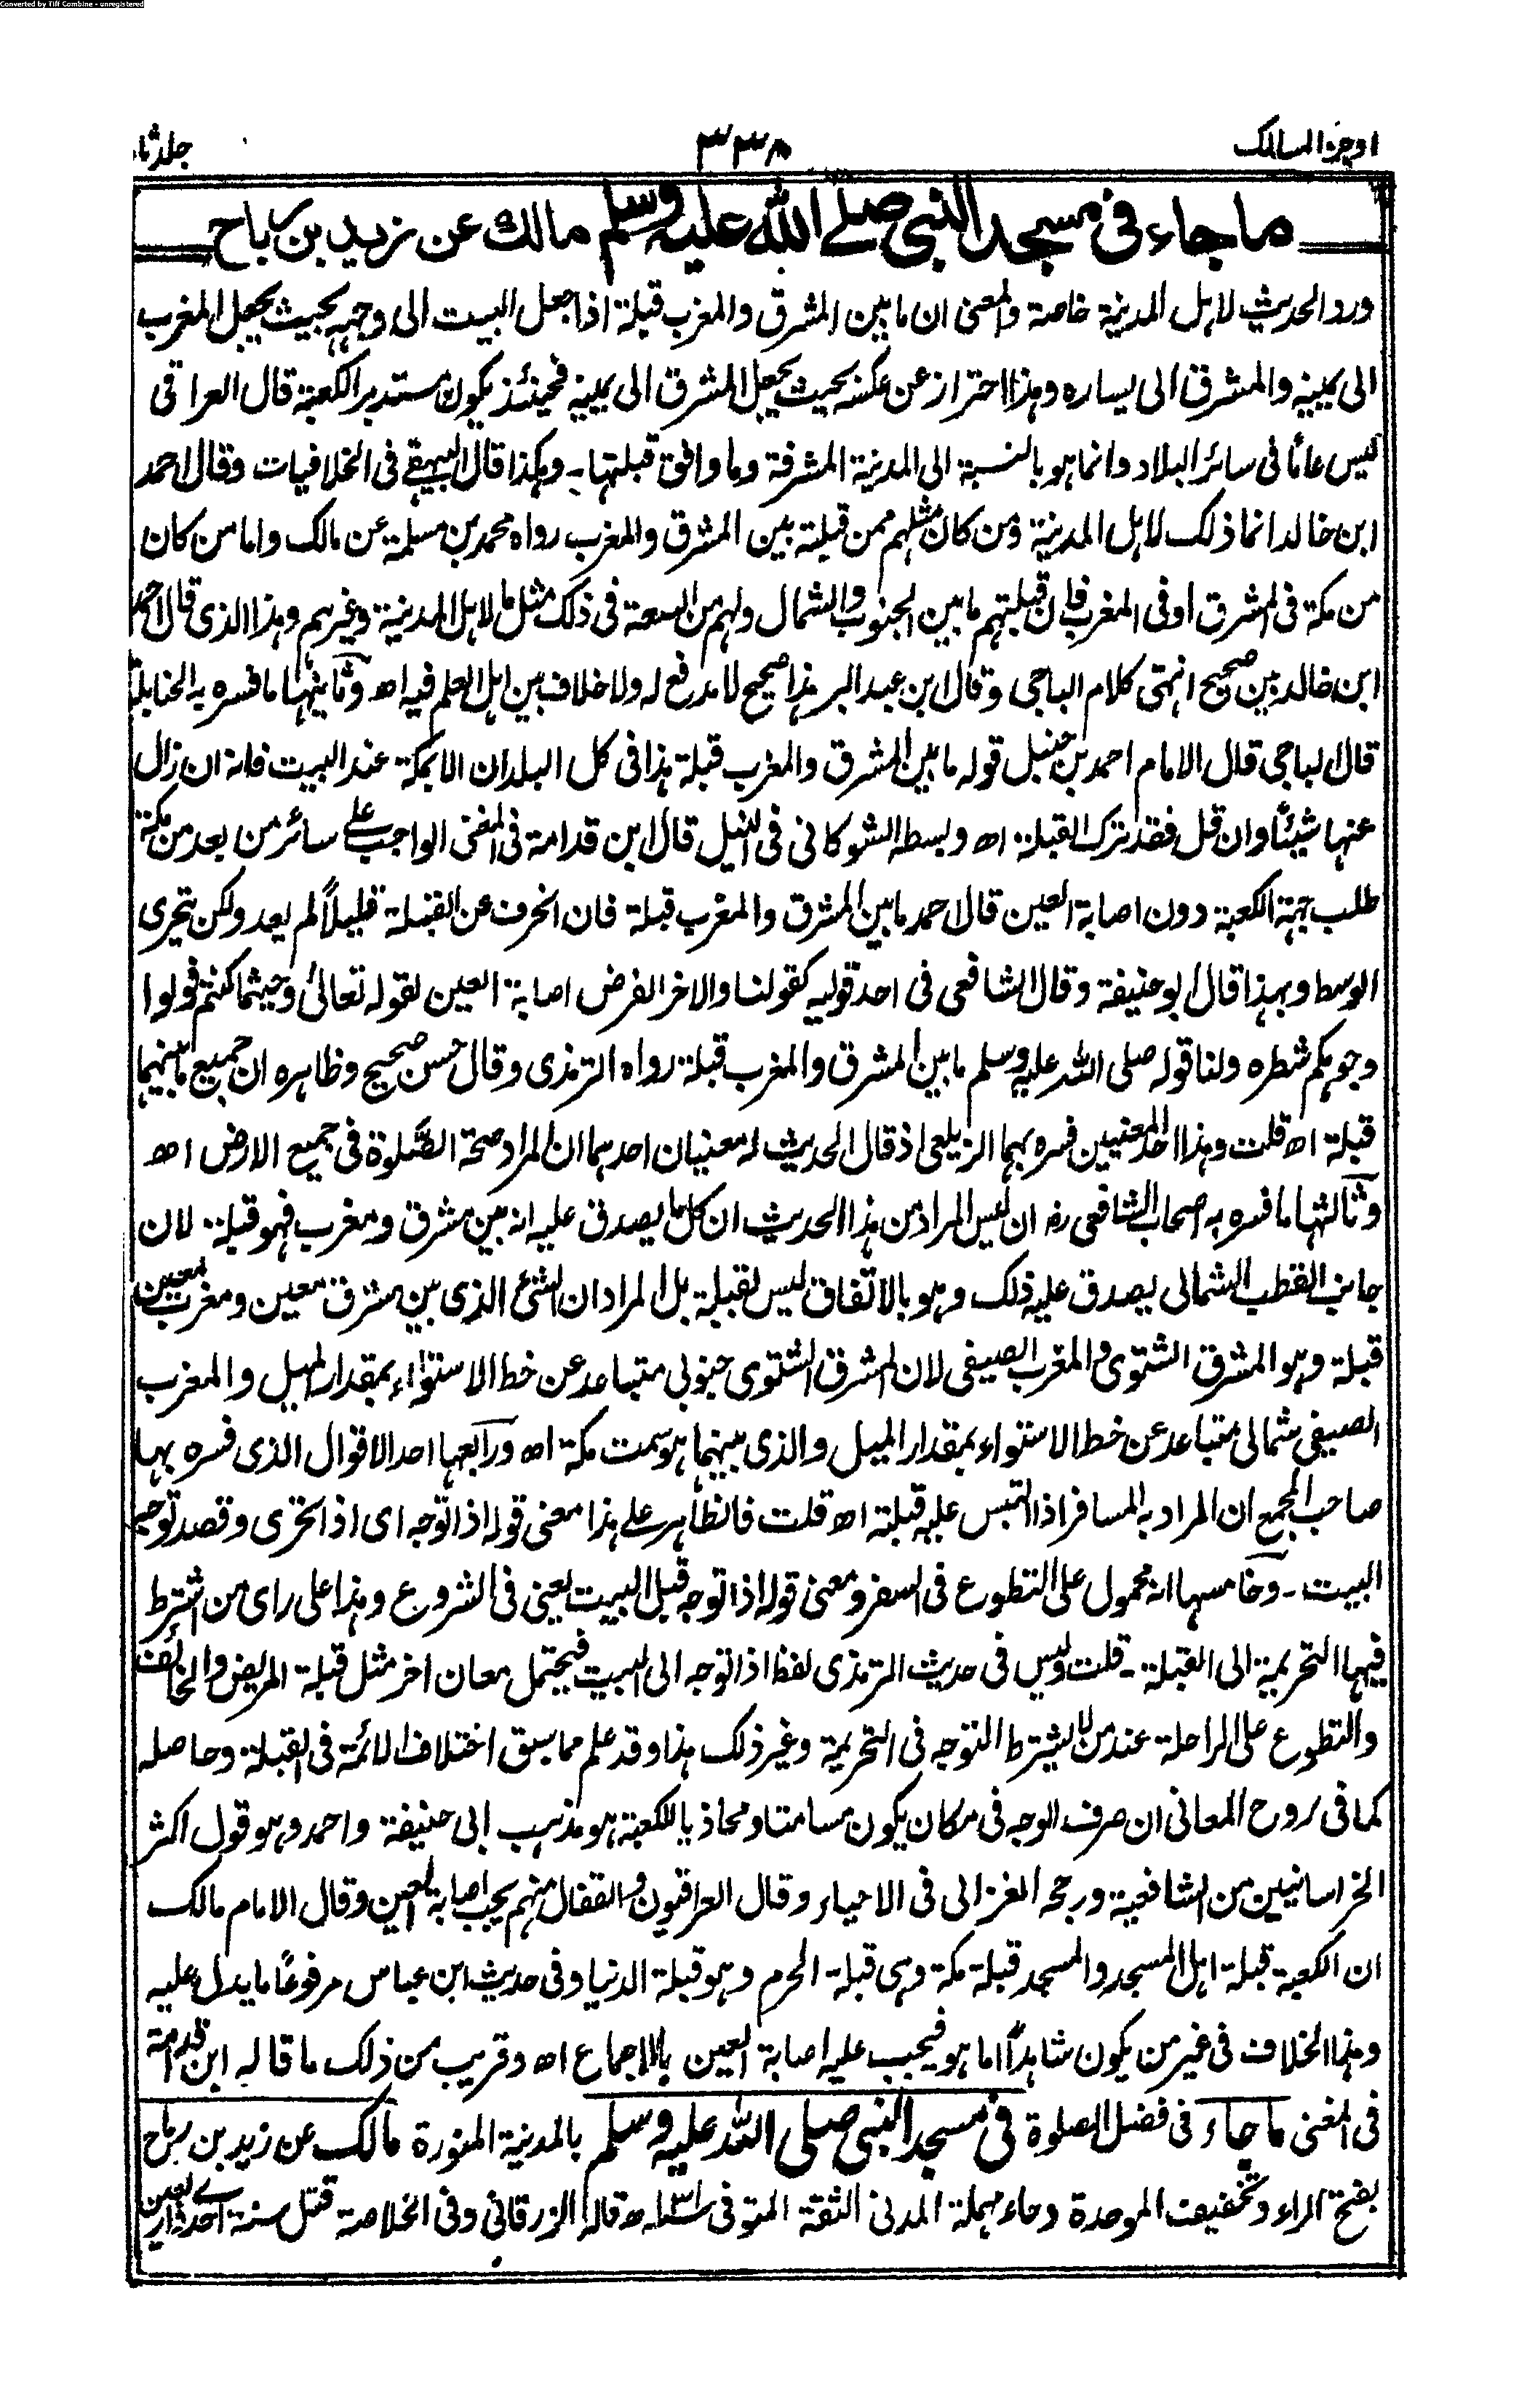 Converted by Tiff Combine - unregistered
اوجز المسالك ٣٣٨ جلد ثا
ما جاء فى مسجد النبى صلے اللّٰه عليه وسلم مالك عن زيد بن رباح
ورد الحديث لاهل المدينة خاصة والمعنى ان ما بين المشرق والمغرب قبلة اذا جعل البيت الى وجهه بحيث يجعل المغرب
الى يمينه والمشرق الى يساره وهذا احتراز عن عكسه بحيث يجعل المشرق الى يمينه فحينئذ يكون مستدبر الكعبة قال العراقى
ليس عامًا فى سائر البلاد وانما هو بالنسبة الى المدينة المشرفة وما وافق قبلتها - وهكذا قال البيهقے فى الخلافيات وقال احمد
ابن خالد انما ذلك لاهل المدينة ومن كان مثلهم ممن قبلته بين المشرق والمغرب رواه محمد بن مسلمة عن مالك واما من كان
من مكة فى المشرق او فى المغرب فان قبلتهم ما بين الجنوب والشمال ولهم من السعة فى ذلك مثل ما لاهل المدينة وغيرهم وهذا الذى قال احمد
ابن خالد بين صحيح انتهى كلام الباجى وقال ابن عبد البر هذا صحيح لا مدفع له ولا خلاف بين اهل العلم فيه اھ وثانيها ما فسره به الحنابلة
قال الباجى قال الامام احمد بن حنبل قوله ما بين المشرق والمغرب قبلة هذا فى كل البلدان الا بمكة عند البيت فانه ان زال
عنها شيئًا وان قل فقد ترك القبلة اھ وبسطه الشوكانى فى النيل قال ابن قدامة فى المغنى الواجب على سائر من بعد من مكة
طلب جهة الكعبة دون اصابة العين قال احمد ما بين المشرق والمغرب قبلة فان انحرف عن القبلة قليلاً لم يعد ولكن يتحرى
الوسط وبهذا قال ابو حنيفة وقال الشافعى فى احد قوليه كقولنا والاخر الفرض اصابة العين لقوله تعالىٰ وحيثما كنتم فولوا
وجوهكم شطره ولنا قوله صلى اللّٰه عليه وسلم ما بين المشرق والمغرب قبلة رواه الترمذى وقال حسن صحيح وظاهره ان جميع ما بينهما
قبلة اھ قلت وهذا احد المعنيين فسره بهما الزيلعى اذ قال الحديث له معنيان احدهما ان المراد صحة الصّلوة فى جميع الارض اھ
وثالثها ما فسره به اصحاب الشافعى رض ان ليس المراد من هذا الحديث ان كل ما يصدق عليه انه بين مشرق ومغرب فهو قبلة لان
جانب القطب الشمالى يصدق عليه ذلك وهو بالاتفاق ليس لقبلة بل المراد ان الشئ الذى بين مشرق معين ومغرب معين
قبلة وهو المشرق الشتوى والمغرب الصيفى لان المشرق الشتوى جنوبى متباعد عن خط الاستواء بمقدار الميل والمغرب
الصيفى شمالى متباعد عن خط الاستواء بمقدار الميل والذى بينهما هو سمت مكة اھ ورابعها احد الاقوال الذى فسره بها
صاحب المجمع ان المراد به المسافر اذا التبس عليه قبلته اھ قلت فالظاهر على هذا معنى قوله اذا توجه اى اذا تحرى وقصد توجه
البيت - وخامسها انه محمول على التطوع فى السفر ومعنى قوله اذا توجه قبل البيت يعنى فى الشروع وهذا على راى من اشترط
فيها التحريمة الى القبلة - قلت وليس فى حديث الترمذى لفظ اذا توجه الى البيت فيحتمل معان اخر مثل قبلة المريض والخائف
والتطوع على الراحلة عند من لا يشترط التوجه فى التحريمة وغير ذلك هذا وقد علم مما سبق اختلاف الائمة فى القبلة وحاصله
كما فى روح المعانى ان صرف الوجه فى مكان يكون مسامتا ومحاذيا للكعبة هو مذهب ابى حنيفة واحمد وهو قول اكثر
الخراسانيين من الشافعية ورجحه الغزالى فى الاحياء وقال العراقيون والقفال منهم يجب اصابة العين وقال الامام مالك
ان الكعبة قبلة اهل المسجد والمسجد قبلة مكة وهى قبلة الحرم وهو قبلة الدنيا وفى حديث ابن عباس مرفوعًا ما يدل عليه
وهذا الخلاف فى غير من يكون شاهدًا اما هو فيجب عليه اصابة العين بالاجماع اھ وقريب من ذلك ما قاله ابن قدامة
فى المغنى ما جاء فى فضل الصلوة فى مسجد النبى صلى اللّٰه عليه وسلم بالمدينة المنورة مالك عن زيد بن رباح
بفتح الراء وتخفيف الموحدة وحاء مهملة المدنى الثقة المتوفى سنة ١٣١ھ قاله الزرقانى وفى الخلاصة قتل سنة احدى واربعين